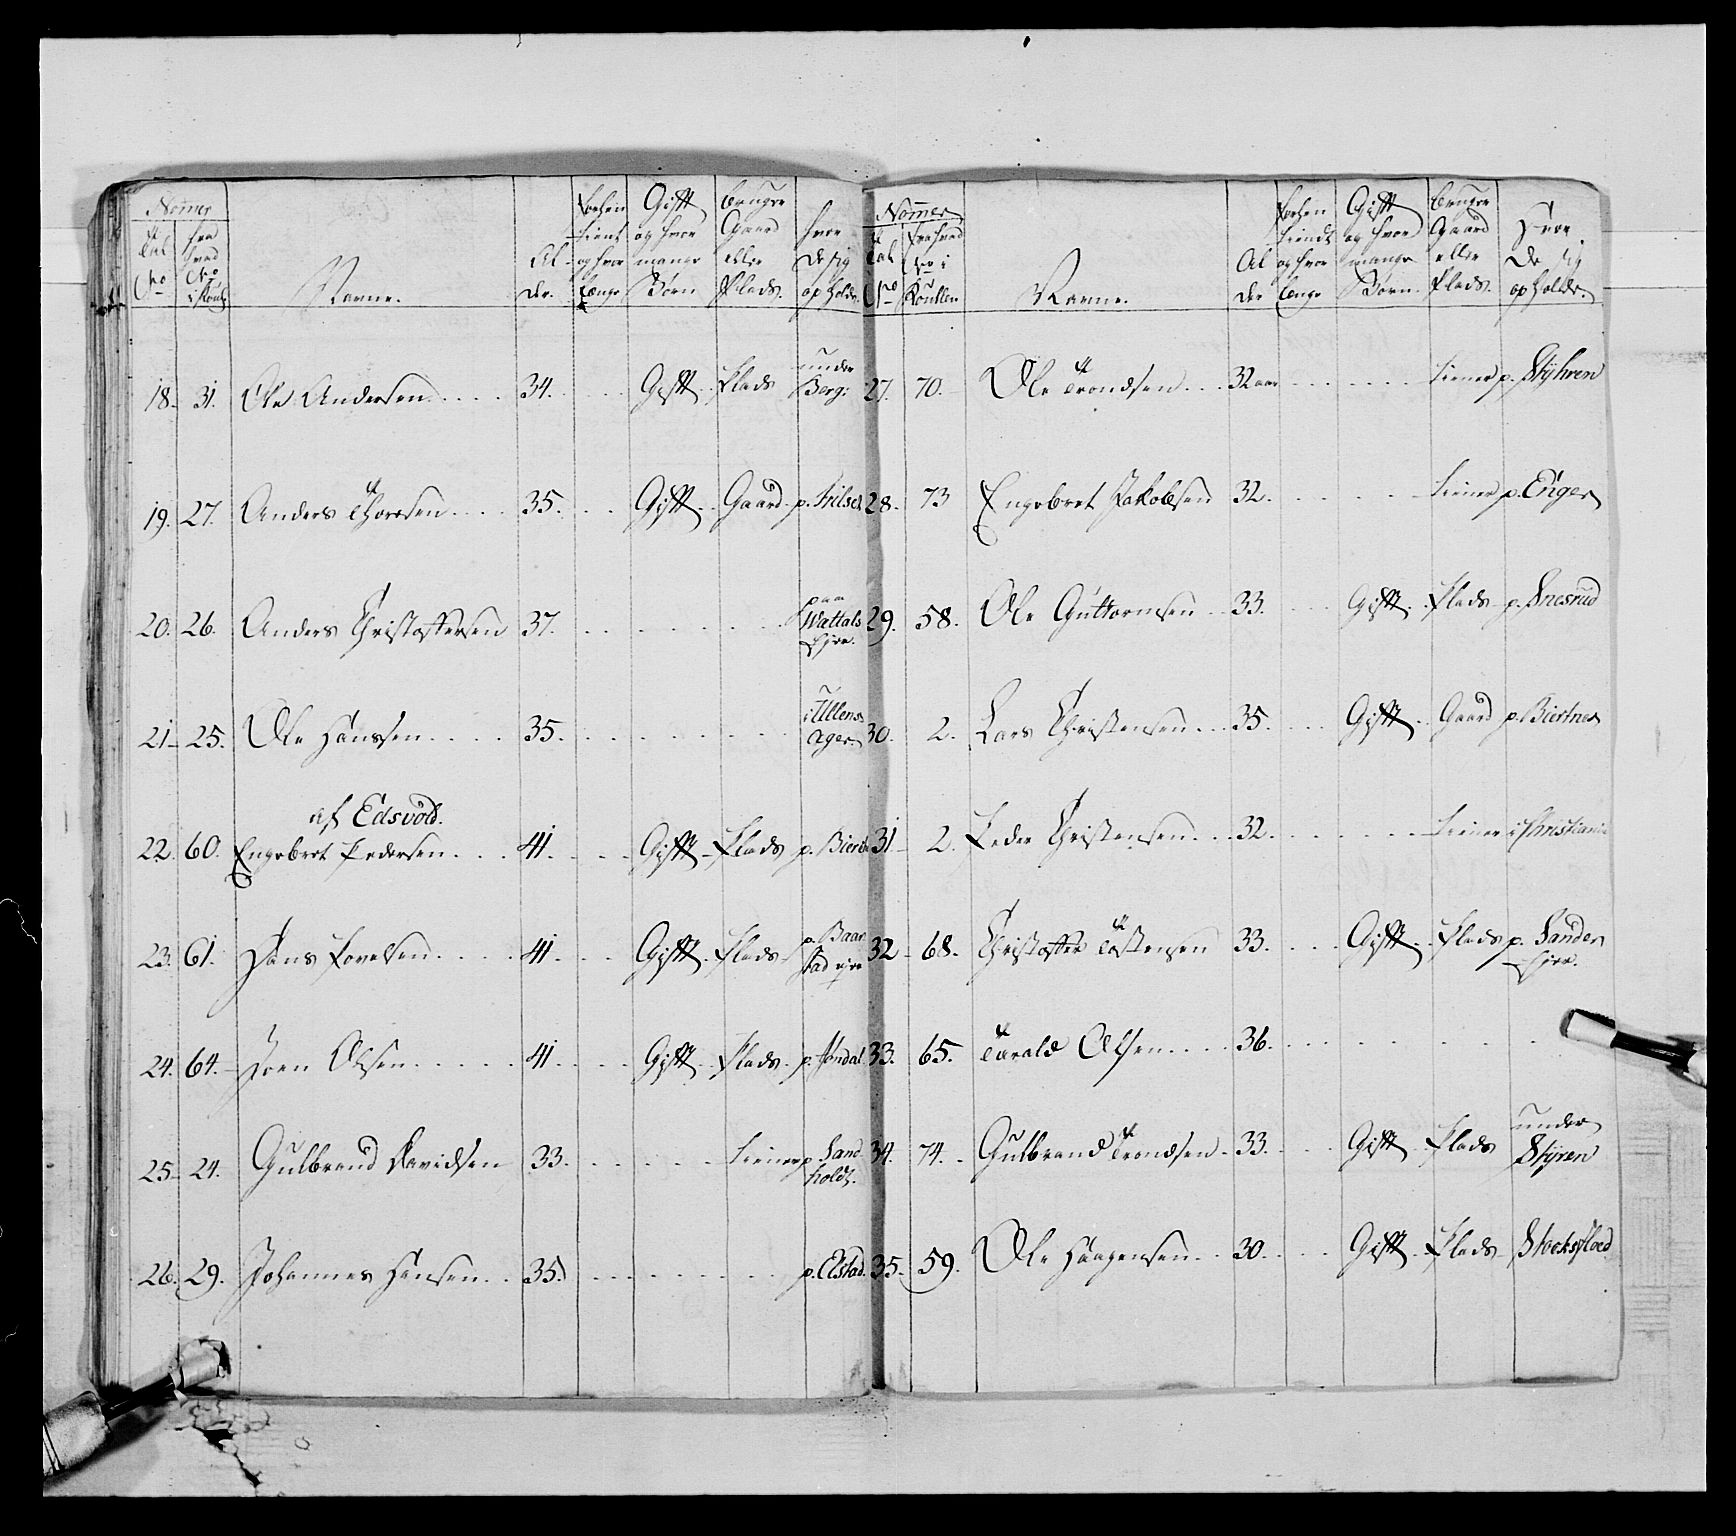 Nomer
Tal No
fra hvad No i Roul
Navne.
Alder.
tient og hvor længe
Gift og hvor mange Børn
bruger Gaard eller Plads.
hvor de sig opholder
18. 31. Ole Andersen 34. Gift Plads under Berg:
19. 27. Anders Thoresen 35. Gift Gaard p.
20. 26. Anders Christoffersen 37. paa Wattals Eyer.
21. 25. Ole Hanssen 35. i Ullensager
af Edsvold.
22. 60. Engebret Pedersen 41. Gift Plads p.
23. 61. Hans Povelsen 41. Gift Plads p. Baarstad ejer
24. 64. Joen Olsen 41. Gift Plads p.
25. 24. Gulbrand Davidsen 33. tiener p. Sandholdt.
26. 29. Johannes Hansen 35. p. Elstad.
Nomer
Tal No
fra hvad No i Roullen
Navne.
Alder
tiendt og hvor længe
Gift og hvor mange Børn.
bruger Gaard eller Plads.
Hvor de sig opholder.
27. 70. Ole Trondsen 32 aar tiener p. Styhren
28. 73 Engebret Jakobsen 32. tiener p. Enger
29. 58. Ole Guttormsen 33. Gift Plads p. Snesrud
30. 2. Lars Christensen 35. Gift Gaard p. Biertnes
31 2. Peder Christensen 32. tiener i Christiania
32 68. Christoffer Tostensen 33. Gift Plads p. Sander Ejer.
33. 65. Tarald Olsen 36.
34. 74. Gulbrand Trondsen 33. Gift Plads under Styren
35. 59. Ole Haagensen 30. Gift Plads Stocksfloed